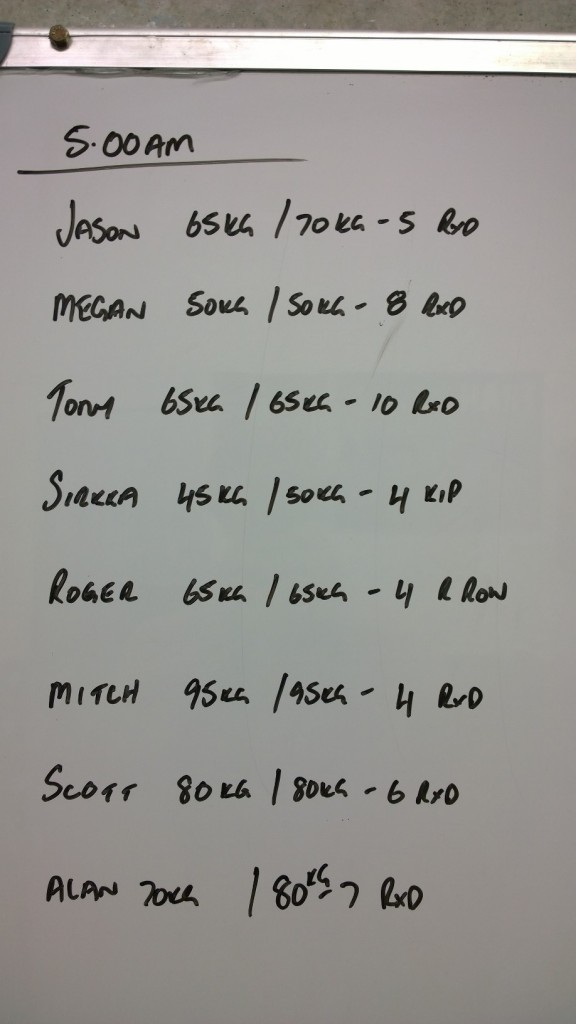 5.00AM
JASON 65KG / 70KG - 5 RxD
MEGAN 50KG / 50KG - 8 RxD
TONY 65KG / 65KG - 10 RxD
SIRKKA 45KG / 50KG - 4 KIP
ROGER 65KG / 65KG - 4 R ROW
MITCH 95KG / 95KG - 4 RxD
SCOTT 80KG / 80KG - 6 RxD
ALAN 70KG / 80KG - 7 RxD